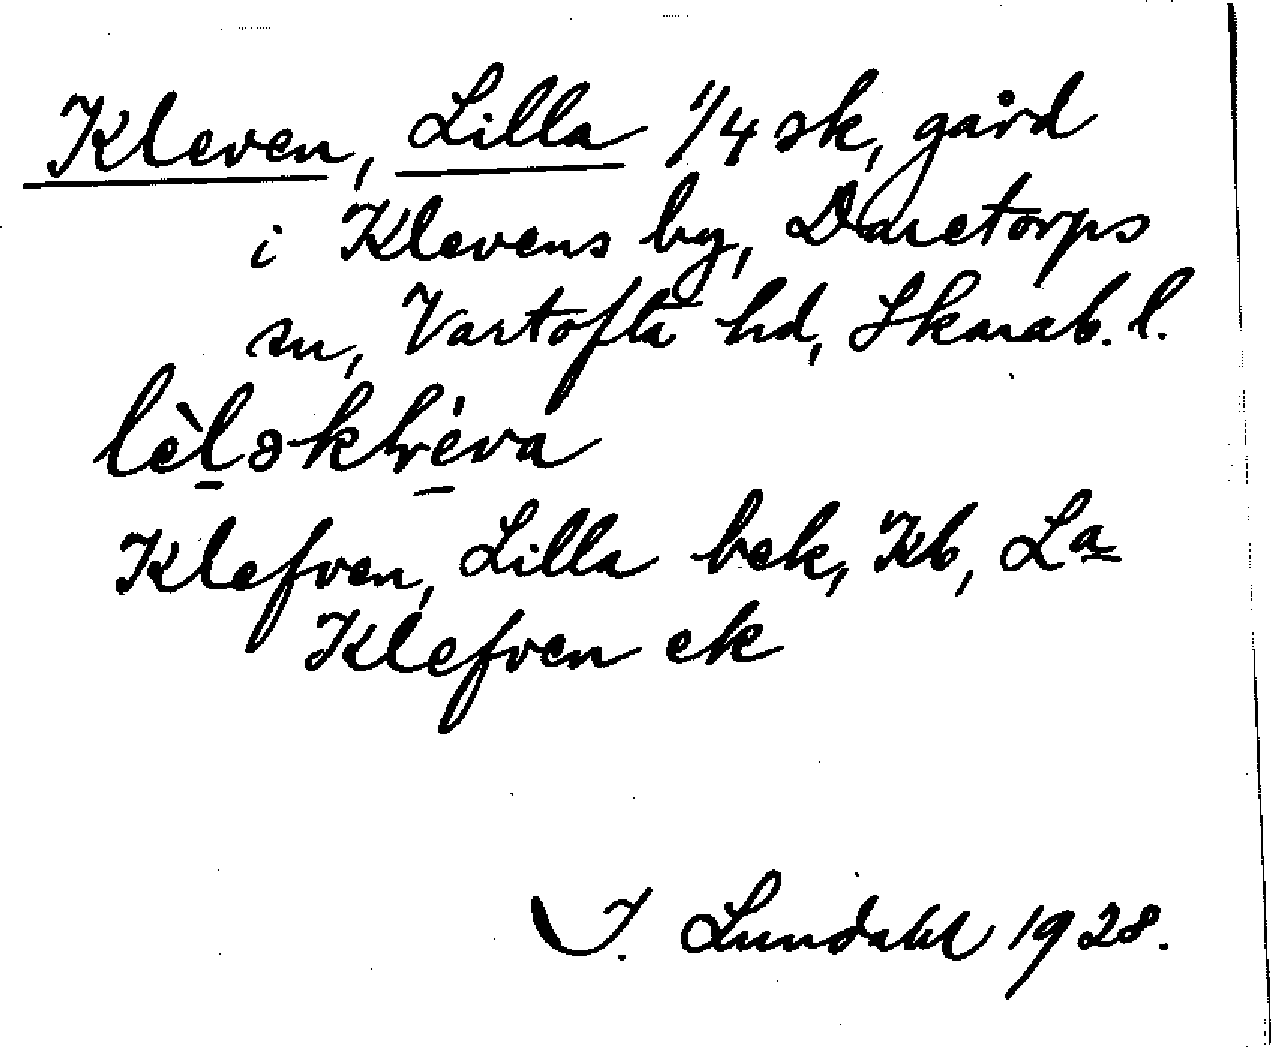 Kleven, Lilla 1/4 sk, gård
i Klevens by, Daretorps
sn, Vartofta hd, Skarab. l.
lèl̠əskl̥ė̠va
Klefven, Lilla bek, Kb, La
Klefven ek
I. Lundahl 1928.